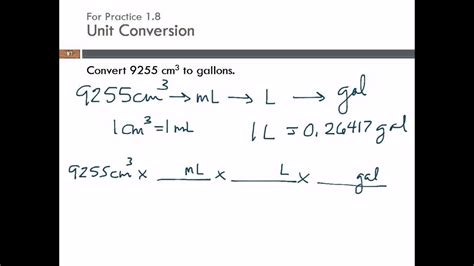 For Practice 1.8
Unit Conversion
Convert 9255 cm³ to gallons.
9255cm³ → mL → L → gal
1cm³ = 1mL 1L = 0.26417 gal
9255cm³ × ___mL × ___L × ___gal